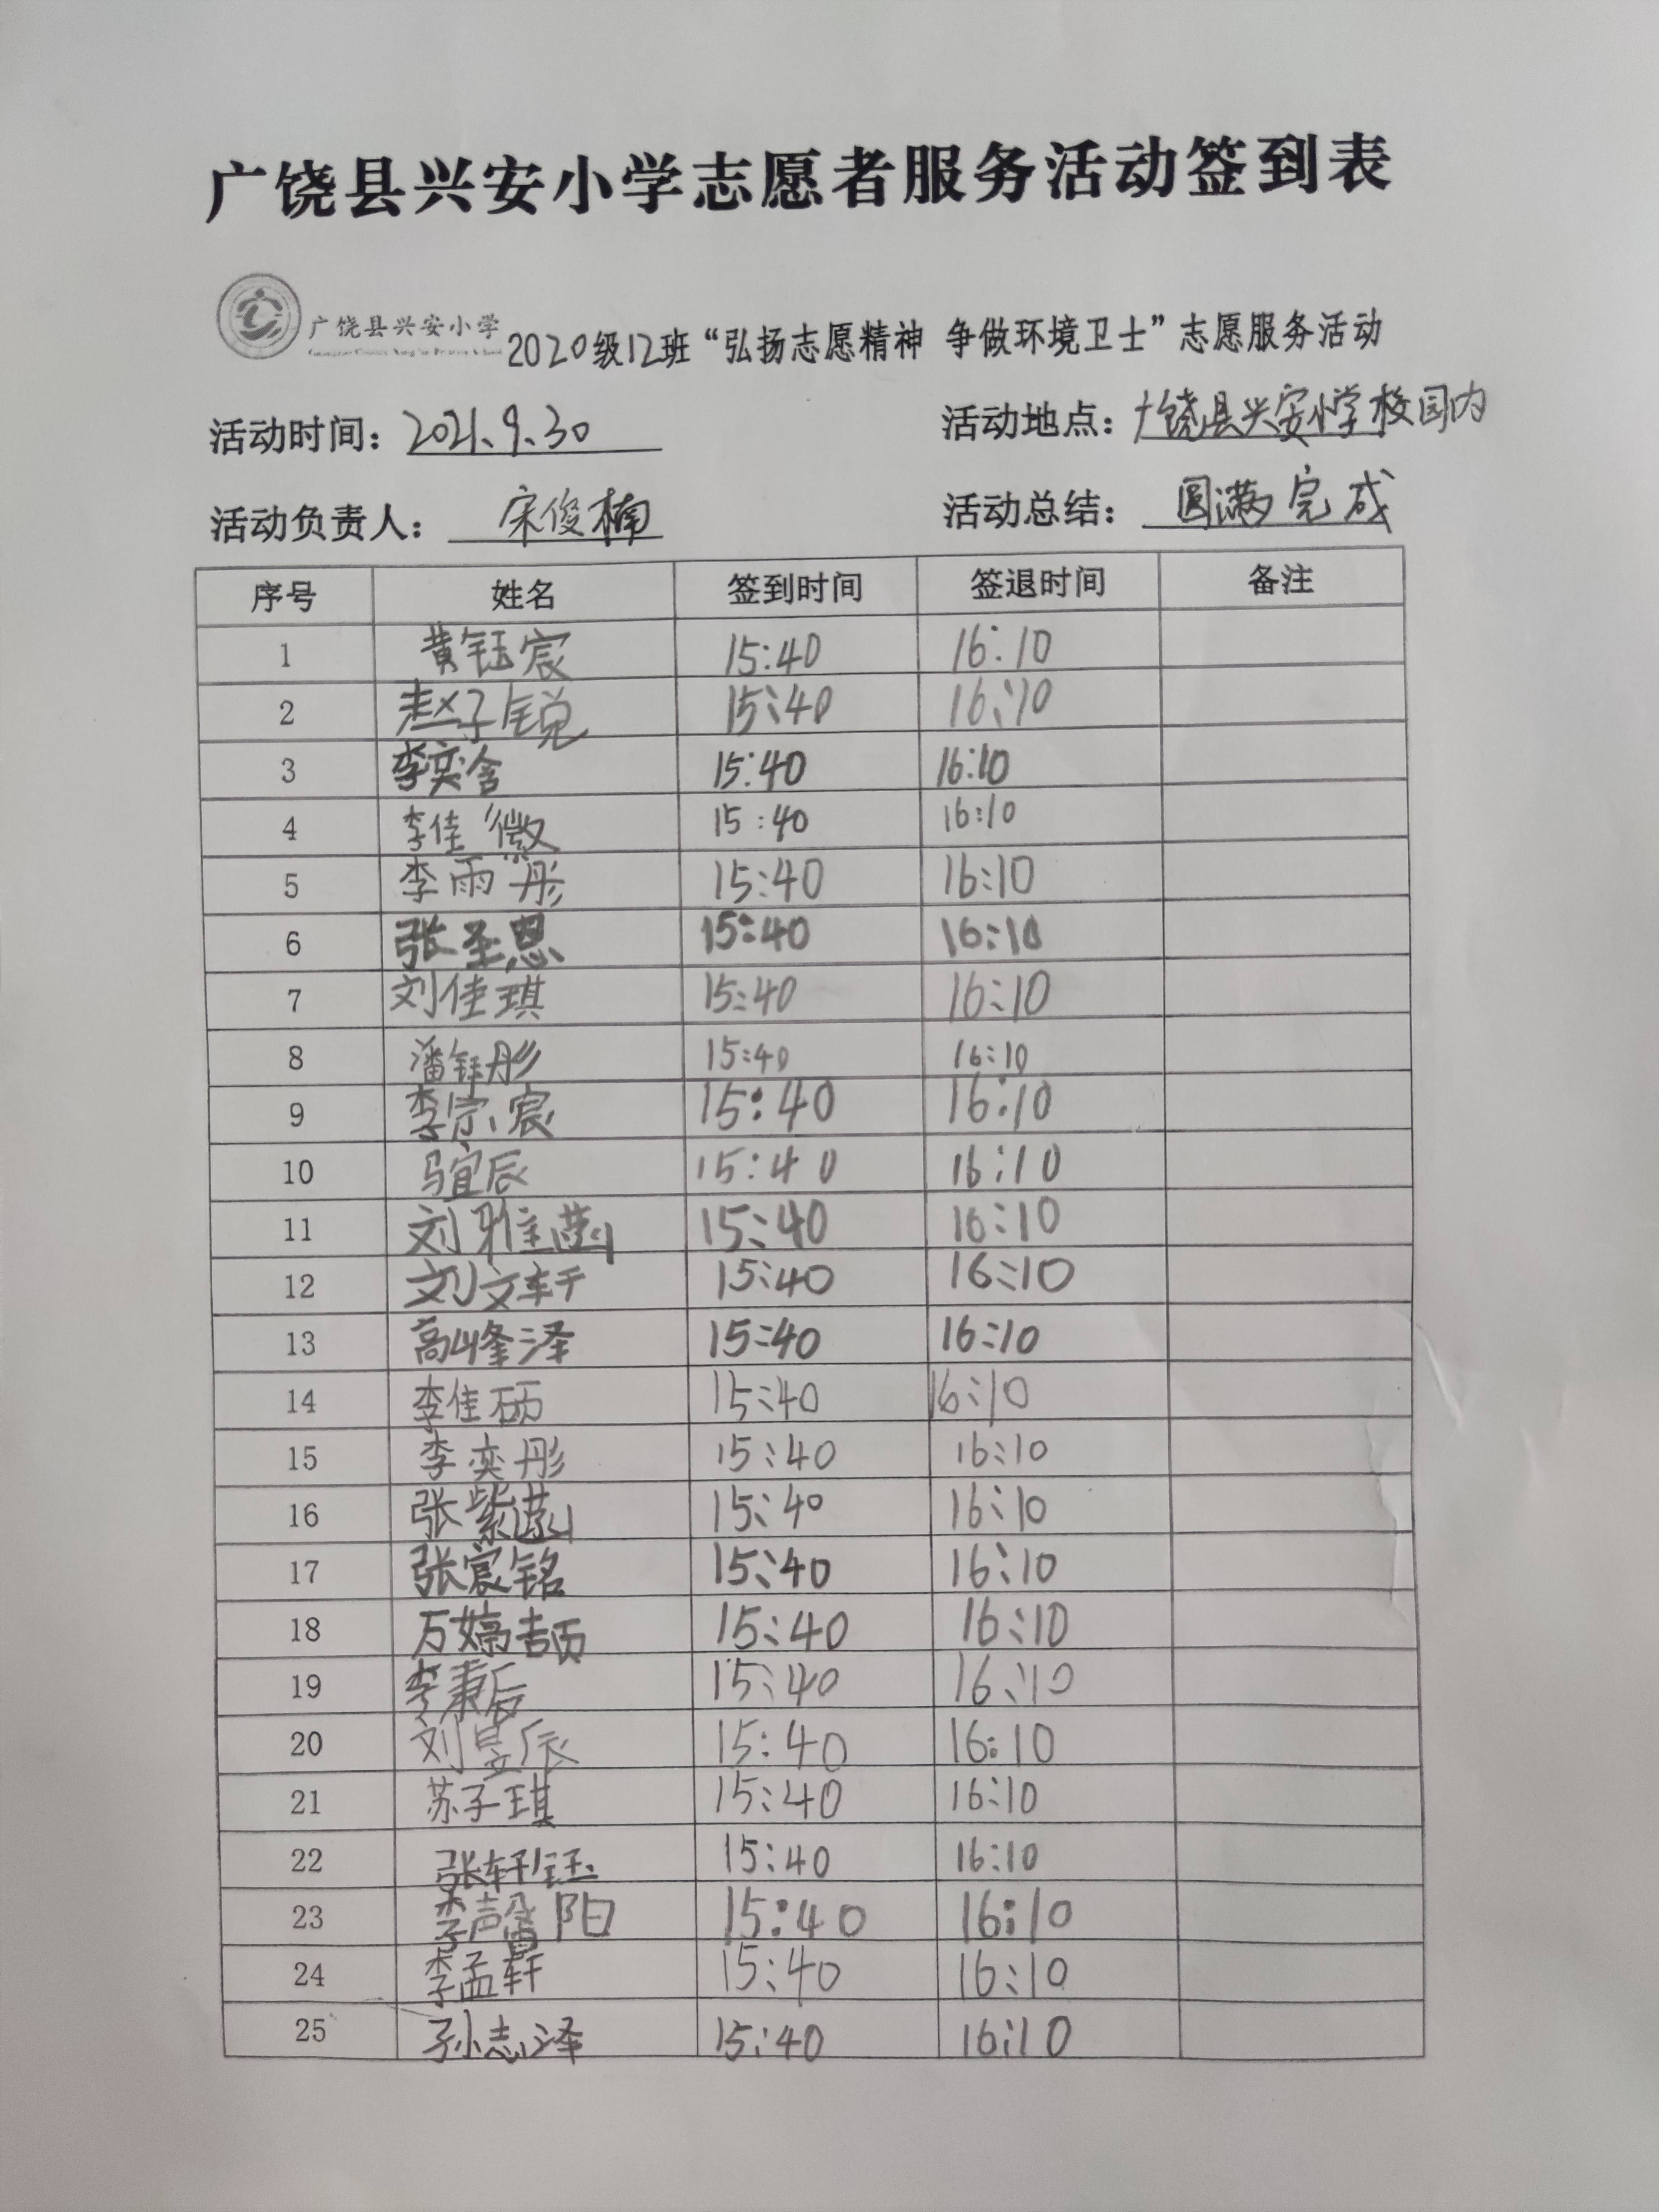 广饶县兴安小学志愿者服务活动签到表
广饶县兴安小学 2020级12班“弘扬志愿精神 争做环境卫士”志愿服务活动
活动时间：2021.9.30 活动地点：广饶县兴安小学校园内
活动负责人：宋俊楠 活动总结：圆满完成
序号 姓名 签到时间 签退时间 备注
1 黄钰宸 15:40 16:10
2 赵子锐 15:40 16:10
3 李奕含 15:40 16:10
4 李佳徽 15:40 16:10
5 李雨彤 15:40 16:10
6 张圣恩 15:40 16:10
7 刘佳琪 15:40 16:10
8 潘钰彤 15:40 16:10
9 李宗宸 15:40 16:10
10 马宜辰 15:40 16:10
11 刘雅菡 15:40 16:10
12 刘文轩 15:40 16:10
13 高峰泽 15:40 16:10
14 李佳硕 15:40 16:10
15 李奕彤 15:40 16:10
16 张紫菡 15:40 16:10
17 张宸铭 15:40 16:10
18 万嫡喆 15:40 16:10
19 李秉辰 15:40 16:10
20 刘昱辰 15:40 16:10
21 苏子琪 15:40 16:10
22 张轩钰 15:40 16:10
23 李馨阳 15:40 16:10
24 李孟轩 15:40 16:10
25 孙志泽 15:40 16:10